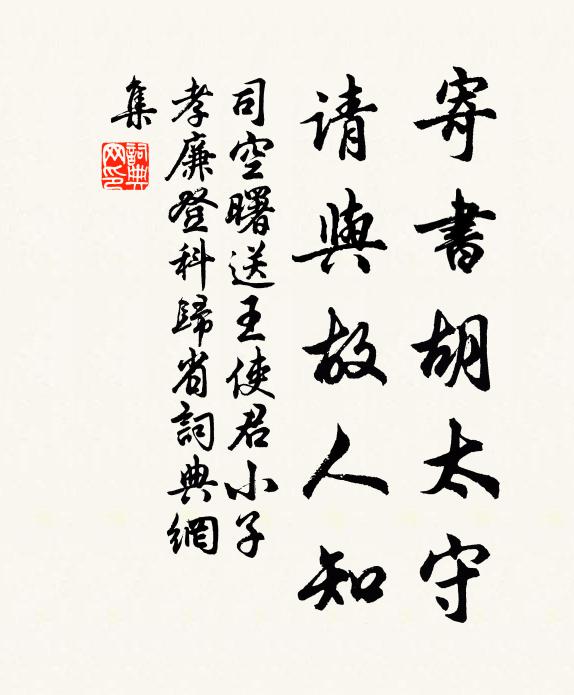 寄書胡太守
請與故人知
司空曙送王使君小子
孝廉登科歸省詞典網
集
詞典
网印